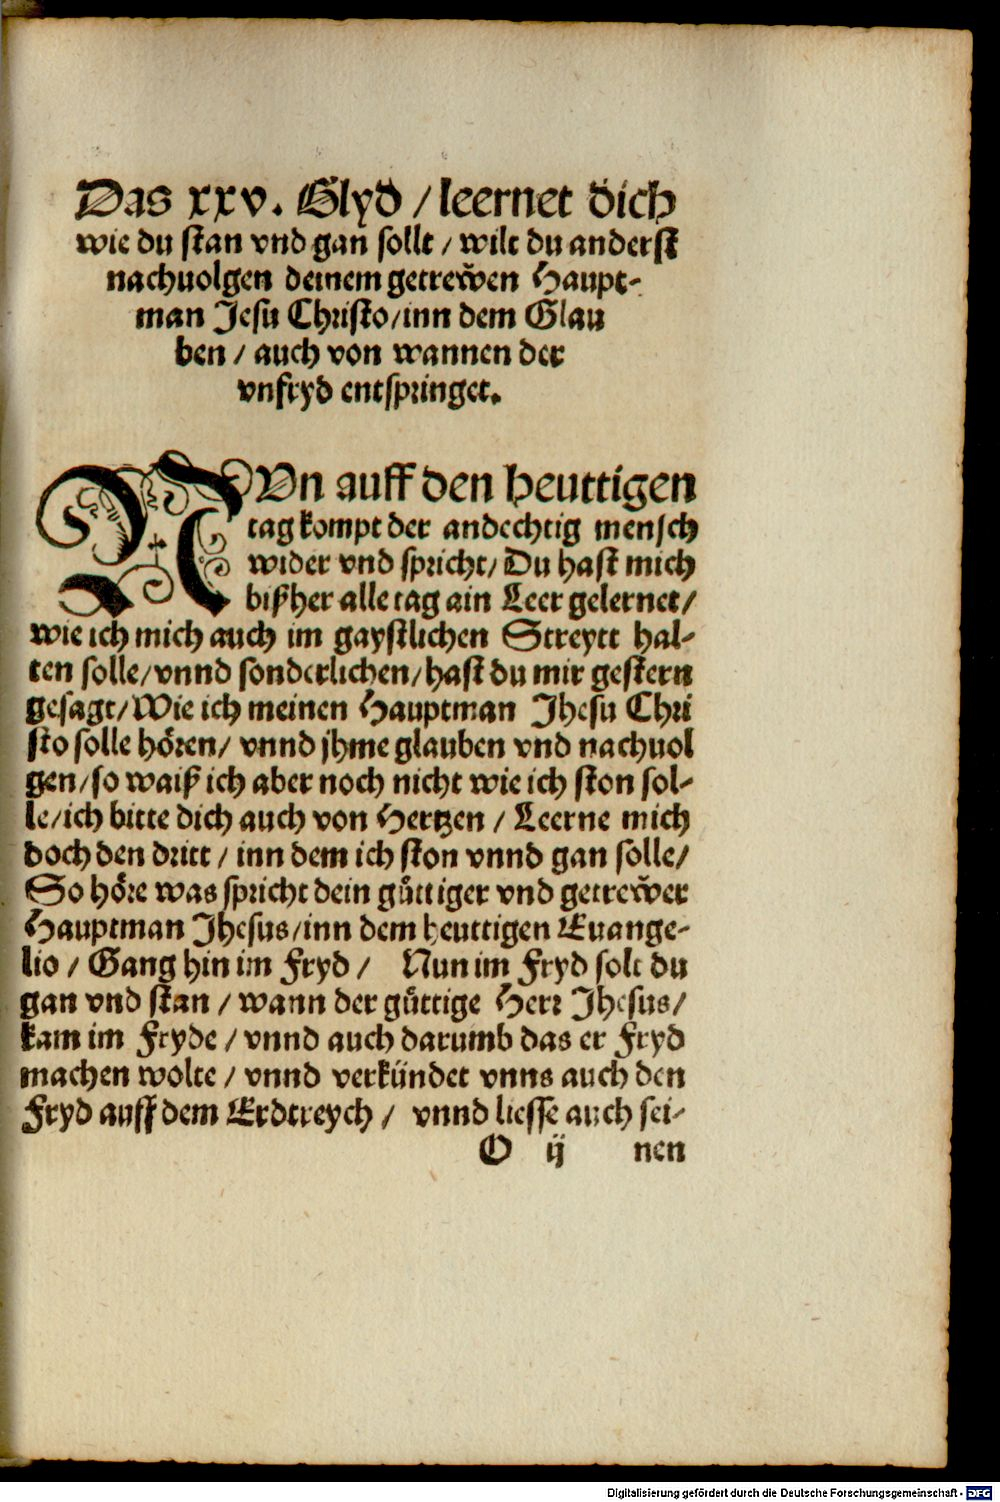 Das xxv. Glyd / leernet dich
wie du stan vnd gan sollt / wilt du anderst
nachuolgen deinem getrewͤen Haupt-
man Jesu Christo / inn dem Glau
ben / auch von wannen der
vnfryd entspringet.
NVn auff den heuttigen
tag kompt der andechtig mensch
wider vnd spricht / Du hast mich
bißher alle tag ain Leer gelernet /
wie ich mich auch im gaystlichen Streytt hal-
ten solle / vnnd sonderlichen / hast du mir gestern
gesagt / Wie ich meinen Hauptman Jhesu Chri
sto solle hoͤren / vnnd jhme glauben vnd nachuol
gen / so waiß ich aber noch nicht wie ich ston sol-
le / ich bitte dich auch von Hertzen / Leerne mich
doch den dritt / inn dem ich ston vnnd gan solle /
So hoͤre was spricht dein guͤttiger vnd getrewͤer
Hauptman Jhesus / inn dem heuttigen Euange-
lio / Gang hin im Fryd / Nun im Fryd solt du
gan vnd stan / wann der guͤttige Herr Jhesus /
kam im Fryde / vnnd auch darumb das er Fryd
machen wolte / vnnd verkündet vnns auch den
Fryd auff dem Erdtreych / vnnd liesse auch sei-
O ij nen
Digitalisierung gefördert durch die Deutsche Forschungsgemeinschaft - DFG